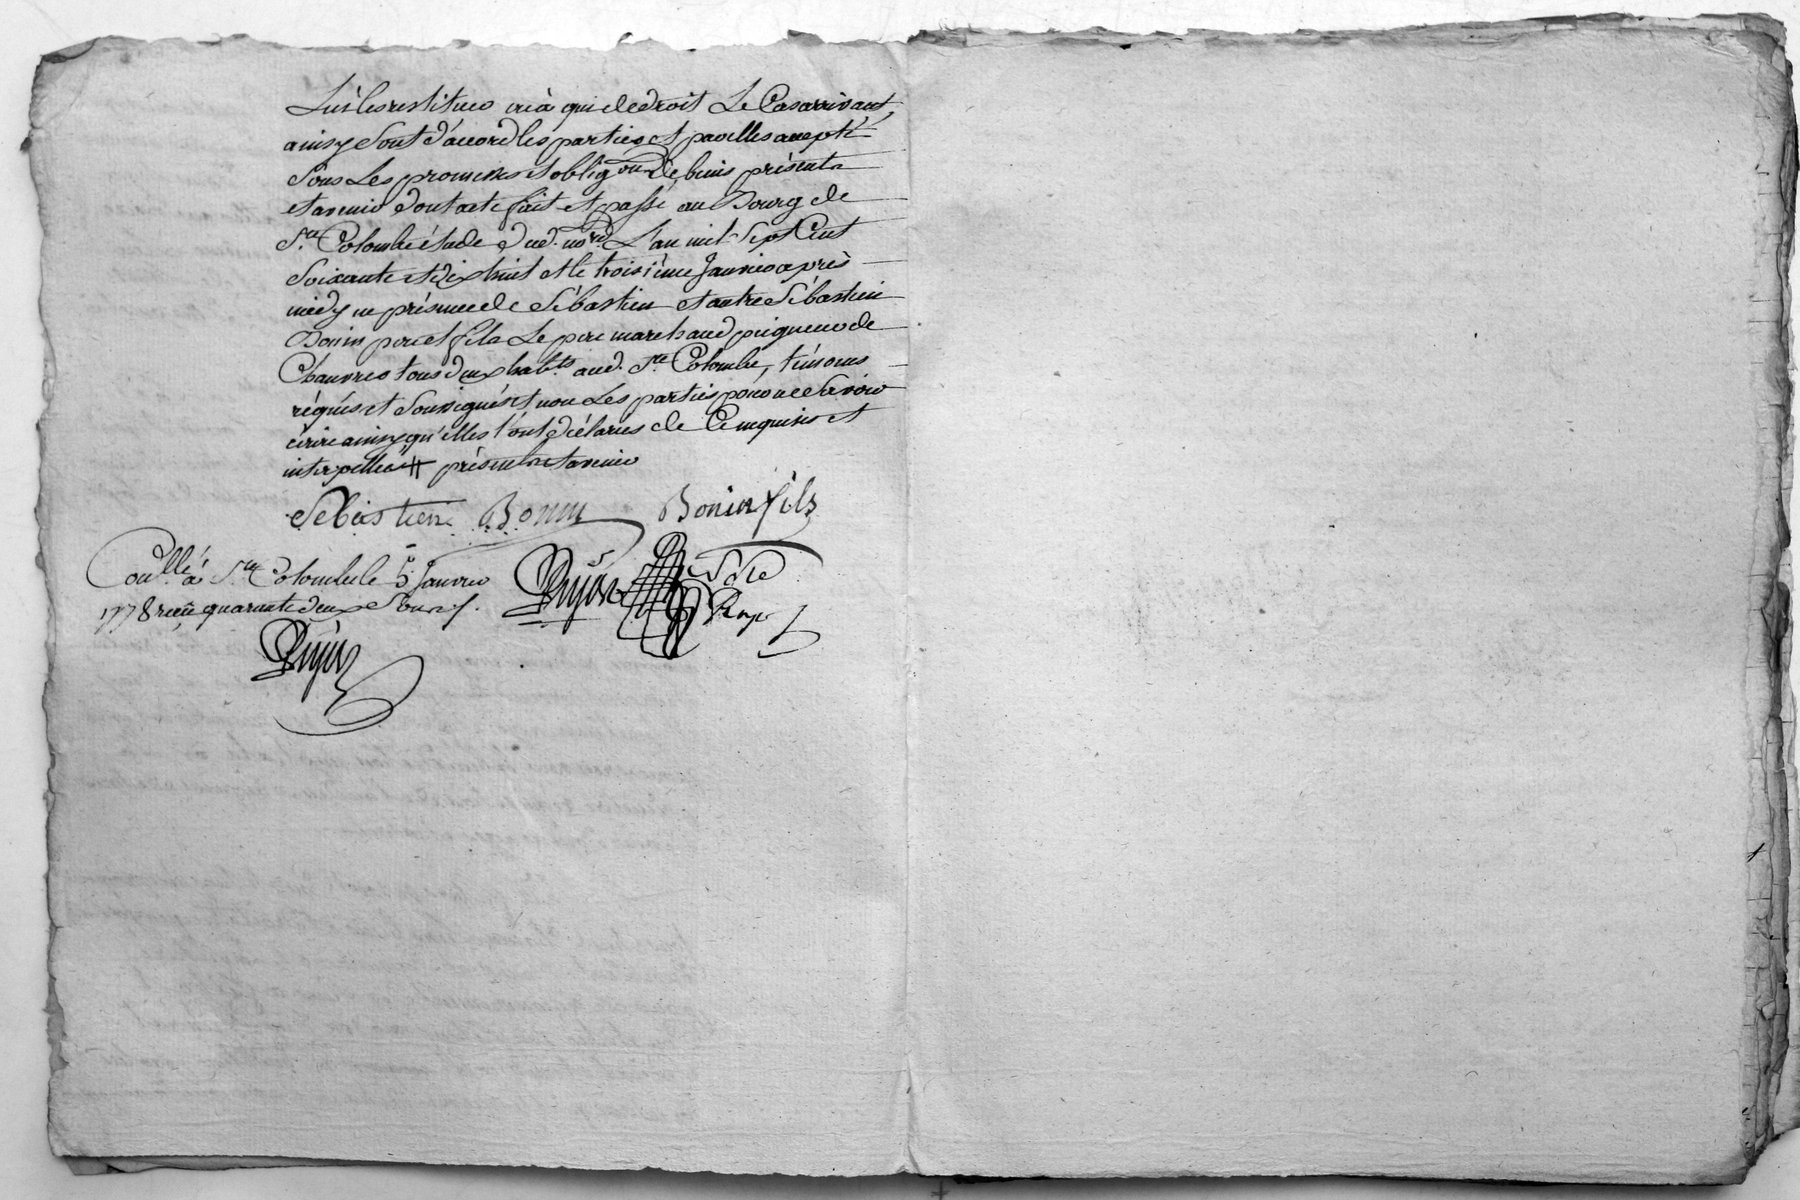 Luy les restituer ou à qui de droit Le Cas arrivant
ainsy sont d'accord les parties et par elles accepté
sous Les promesses et oblig.ons de biens présents
et avenir dont acte fait et passé au Bourg de
S.te Colombe étude dud. no.re L'an mil sept Cent
soixante et dix huit et le troisième Janvier après
midy en présence de Sébastien et autre Sébastien
Bonin pere et fils Le pere marchand peigneur de
Chanvres tous deux hab.ts aud. S.te Colombe, témoins
réquis et soussignés et non Les parties pour ne savoir
écrire ainsy qu'elles l'ont déclaré de Ce enquises et
interpellées # présents et avenir
Sebastien Bonin Bonin fils
Conllé à S.te Colombe le 5 Janvier
1778 reçu quarante deux sous